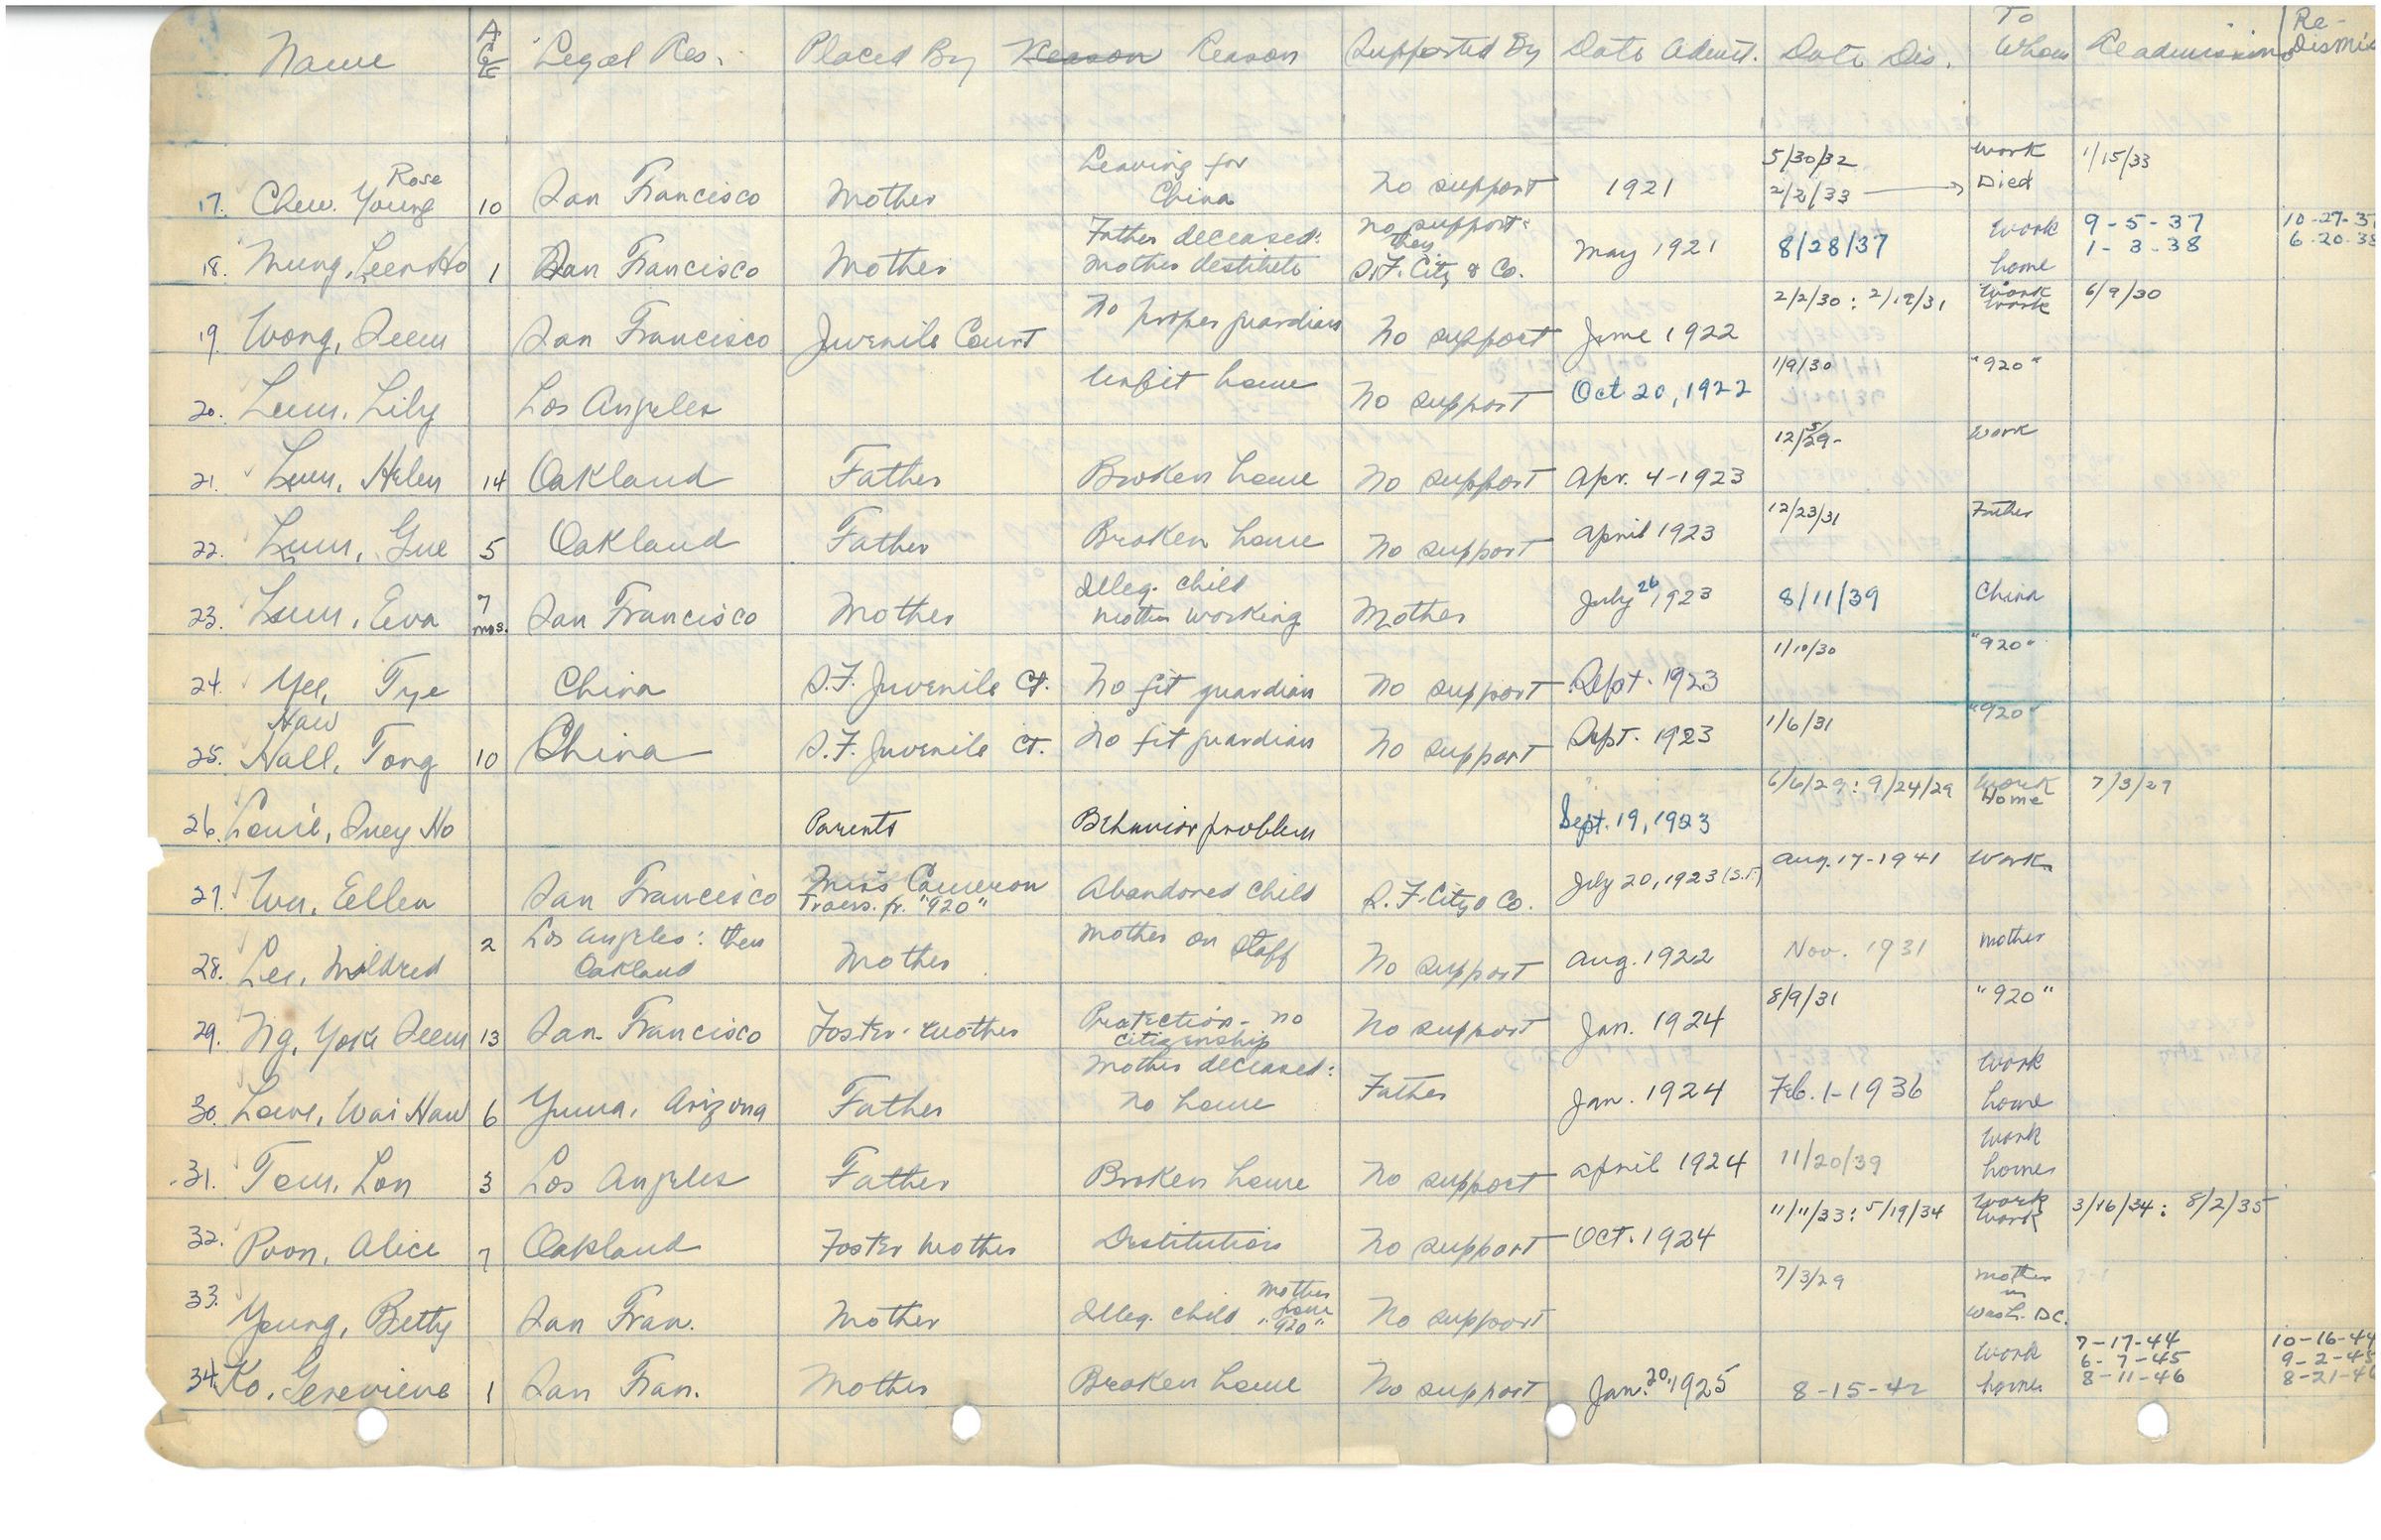 Name AGE Legal Res. Placed By Reason Reason Supported By Date Admit. Date Dis. To Whom Readmission Re-Dismis
17. Chew. Young Rose 10 San Francisco Mother Leaving for China No support 1921 5/30/32 Work 1/15/33
2/2/33 → Died
18. Mung, Leen Ho 1 San Francisco Mother Father deceased: Mother destitute No support: they S.F. City & Co. May 1921 8/28/37 Work home 9-5-37 10-27-37
1-3-38 6-20-38
19. Wong, Seem San Francisco Juvenile Court No proper guardian No support June 1922 2/2/30: 2/12/31 Work Work 6/9/30
20. Lum, Lily Los Angeles Unfit home No support Oct 20, 1922 1/9/30 "920"
21. Lum, Helen 14 Oakland Father Broken home No support Apr. 4-1923 12/5/29- Work
22. Lum, Gue 5 Oakland Father Broken home No support April 1923 12/23/31 Father
23. Lum, Eva 7 mos. San Francisco Mother Illeg. child Mother working Mother July 26 1923 8/11/39 China
24. Yee, Tye China S.F. Juvenile Ct. No fit guardian No support Sept. 1923 1/10/30 "920"
25. Hall, Haw Tong 10 China S.F. Juvenile Ct. No fit guardian No support Sept. 1923 1/6/31 "920"
26. Louie, Quey Ho Parents Behavior problem Sept. 19, 1923 6/6/29: 9/24/29 Work Home 7/3/29
27. Wu, Ellen San Francisco Miss Cameron Trans. fr. "920" Abandoned child S.F. City & Co. July 20, 1923 (S.F.) Aug. 17-1941 Work
28. Lee, Mildred 2 Los Angeles: then Oakland Mother Mother on Staff No support Aug. 1922 Nov. 1931 Mother
29. Ng, York Seem 13 San Francisco Foster-mother Protection - no citizenship No support Jan. 1924 8/9/31 "920"
30. Lowe, Wai Haw 6 Yuma, Arizona Father Mother deceased: no home Father Jan. 1924 Feb. 1-1936 Work home
31. Tom, Lon 3 Los Angeles Father Broken home No support April 1924 11/20/39 Work home
32. Poon, Alice 7 Oakland Foster Mother Destitution No support Oct. 1924 11/11/33: 5/19/34 Work Work 3/16/34: 8/2/35
33. Young, Betty San Fran. Mother Illeg. child Mother from "920" No support 7/3/29 Mother in Wash. D.C.
34. Ko, Genevieve 1 San Fran. Mother Broken home No support Jan. 20, 1925 8-15-42 Work home 7-17-44 10-16-44
6-7-45 9-2-45
8-11-46 8-21-46